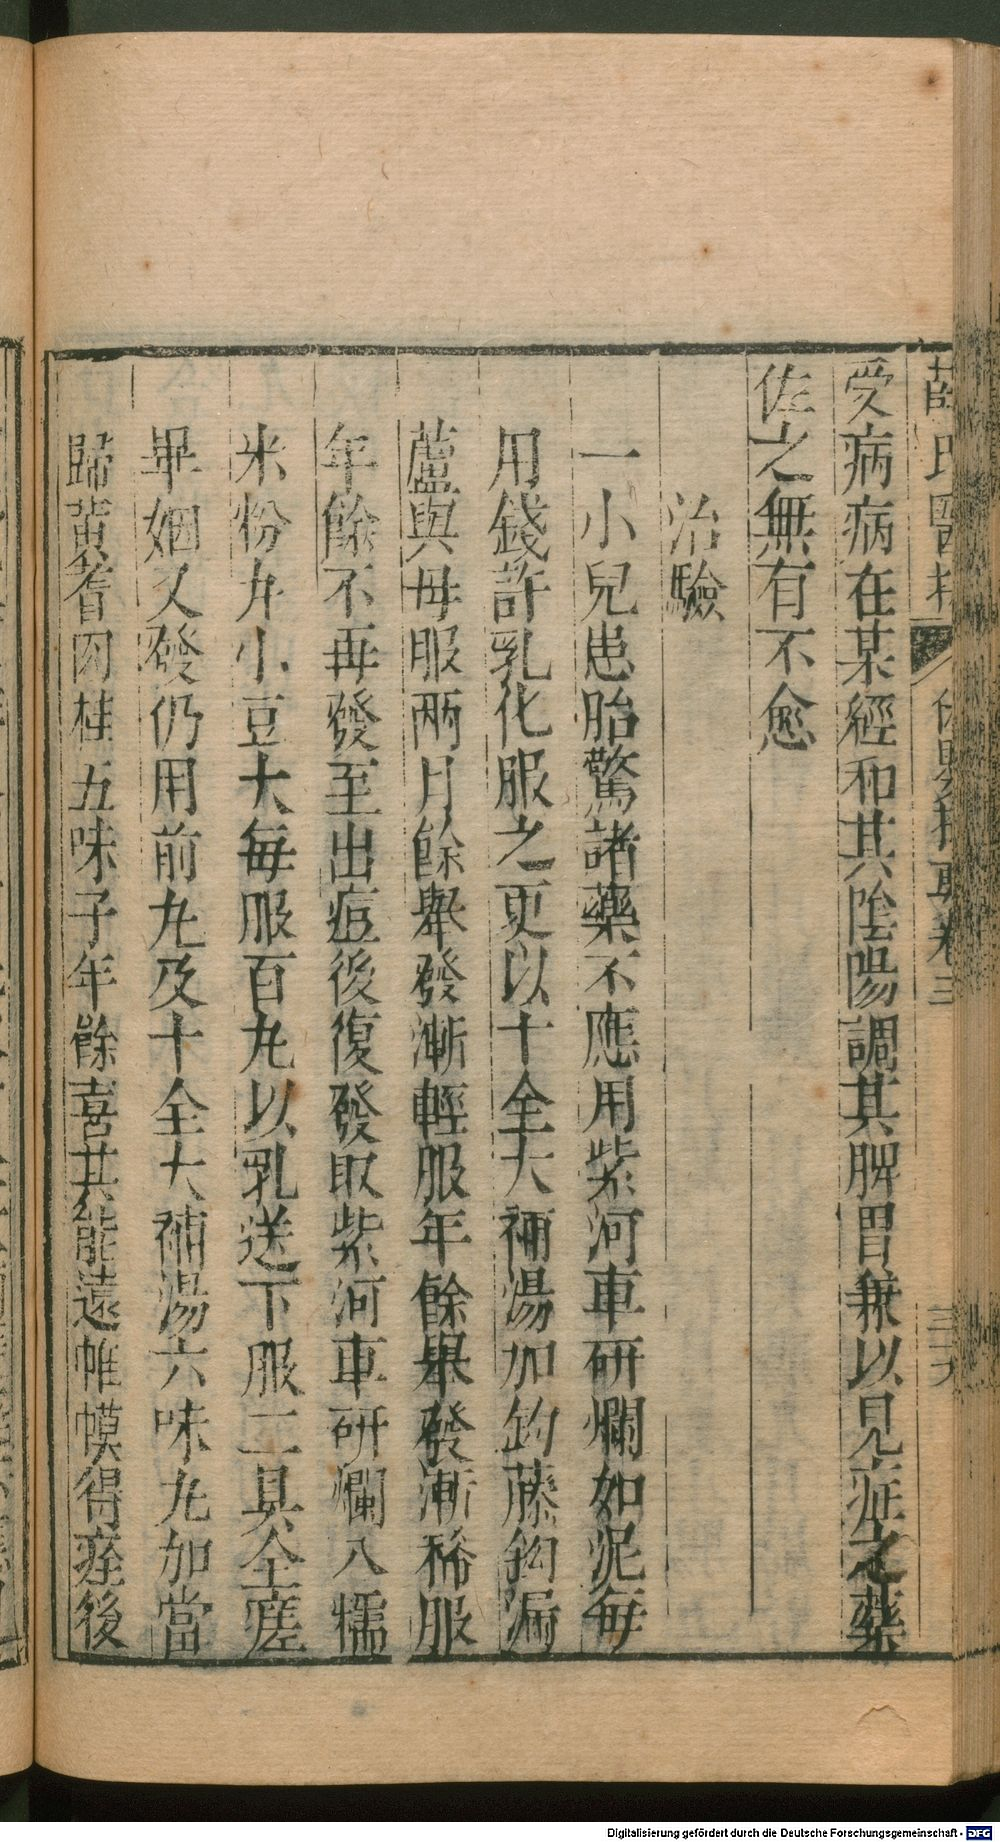 薛氏醫案 保嬰撮要卷三
受病病在某經和其陰陽調其脾胃兼以見症之藥
佐之無有不愈
治驗
一小兒患胎驚諸藥不應用紫河車研爛如泥每
用錢許乳化服之更以十全大補湯加鈎藤鈎漏
蘆與母服兩月餘舉發漸輕服年餘舉發漸稀服
年餘不再發至出痘後復發取紫河車研爛入糯
米粉丸小豆大每服百丸以乳送下服二具全瘥
畢姻又發仍用前丸及十全大補湯六味丸加當
歸黃耆肉桂五味子年餘喜其能遠帷幙得痊後
Digitalisierung gefördert durch die Deutsche Forschungsgemeinschaft - DFG